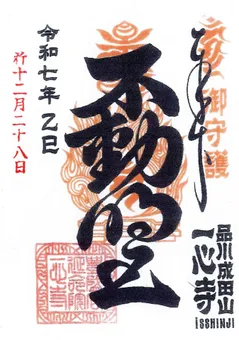 御守護
品川成田山
一心寺
ISSHINJI
不動明王
令和七年乙巳
十二月二十八日